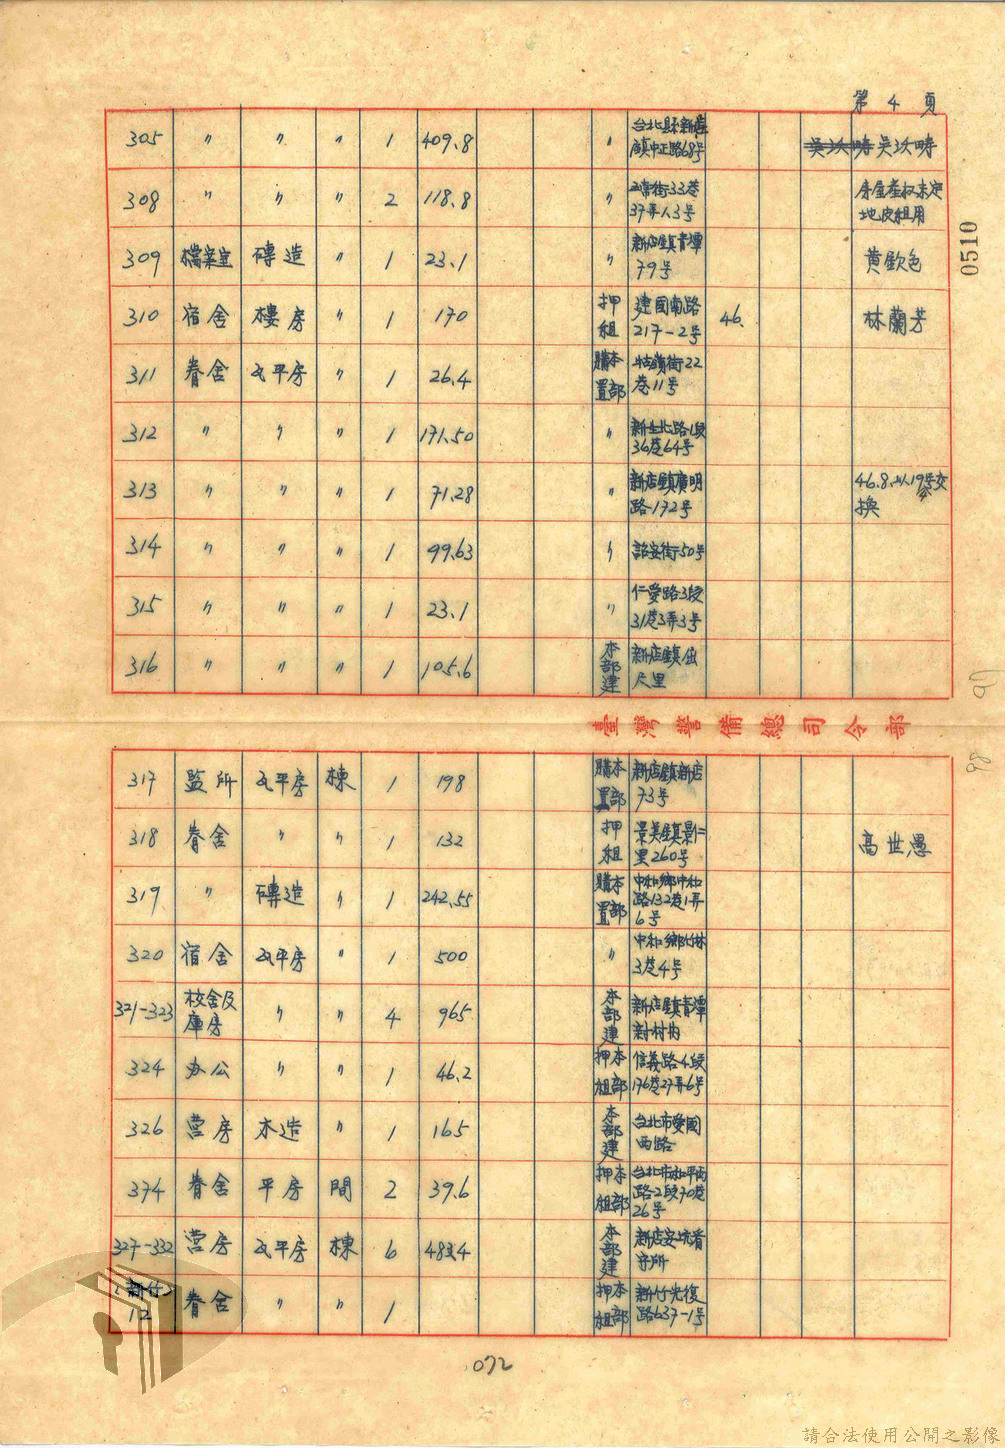 第 4 頁
0510
305 〃 〃 〃 1 409.8 〃 台北縣新店鎮中正路68号 吳泼時 吳泼時
308 〃 〃 〃 2 118.8 〃 街33巷37弄人3号 房屋產权未定地皮租用
309 檔案室 磚造 〃 1 23.1 〃 新店鎮青潭79号 黃欽色
310 宿舍 樓房 〃 1 170 押租 建國南路217-2号 46. 林蘭芳
311 眷舍 瓦平房 〃 1 26.4 本部購置 牯嶺街22巷11号
312 〃 〃 〃 1 171.50 〃 新生北路1段36巷64号
313 〃 〃 〃 1 71.28 〃 新店鎮廣明路172号 46.8.以19号交換
314 〃 〃 〃 1 99.63 〃 詔安街50号
315 〃 〃 〃 1 23.1 〃 仁愛路3段31巷3弄3号
316 〃 〃 〃 1 105.6 本部建 新店鎮屈尺里
97
臺灣警備總司令部
98
317 監所 瓦平房 棟 1 198 本部購置 新店鎮新店73号
318 眷舍 〃 〃 1 132 押租 景美鎮景仁里260号 高世愚
319 〃 磚造 〃 1 242.55 本部購置 中和鄉中和路132巷1弄6号
320 宿舍 瓦平房 〃 1 500 〃 中和鄉竹林3巷4号
321-323 校舍及庫房 〃 〃 4 965 本部建 新店鎮青潭新村内
324 办公 〃 〃 1 46.2 本部押租 信義路4段176巷27弄6号
326 营房 木造 〃 1 165 本部建 台北市愛國西路
374 眷舍 平房 間 2 39.6 本部押租 台北市和平西路2段70巷26号
327-332 营房 瓦平房 棟 6 483.4 本部建 新店安坑看守所
(新竹)12 眷舍 〃 〃 1 本部押租 新竹光復路637-1号
072
請合法使用公開之影像